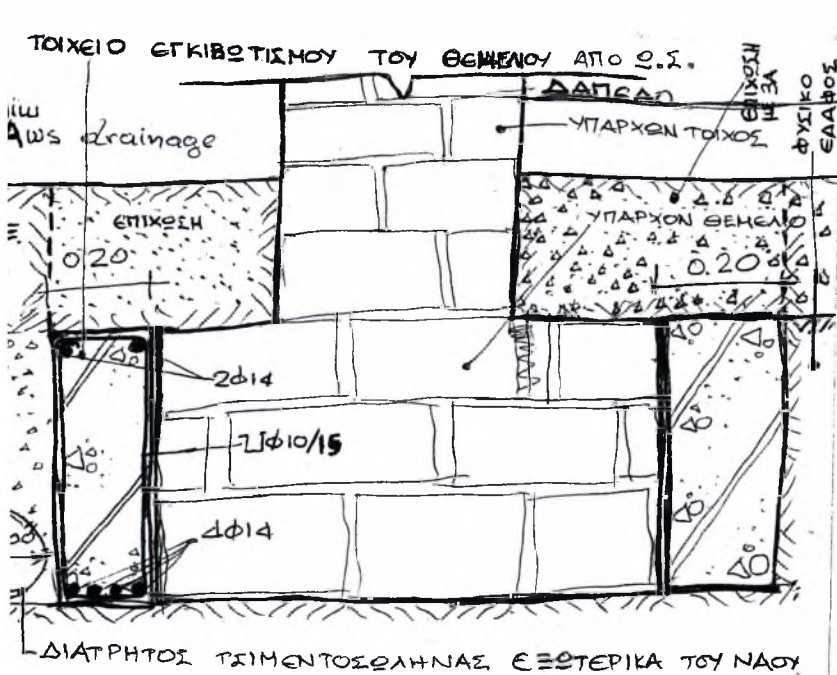 ΤΟΙΧΕΙΟ ΕΓΚΙΒΩΤΙΣΜΟΥ ΤΟΥ ΘΕΜΕΛΙΟΥ ΑΠΟ Ω.Σ.
ΔΑΠΕΔΟ
ΕΠΙΧΩΣΗ
ΜΕ 3Α
ΦΥΣΙΚΟ
ΕΔΑΦΟΣ
ως drainage
ΥΠΑΡΧΩΝ ΤΟΙΧΟΣ
ΕΠΙΧΩΣΗ
ΥΠΑΡΧΟΝ ΘΕΜΕΛΙΟ
0.20
0.20
2Φ14
Φ10/15
4Φ14
ΔΙΑΤΡΗΤΟΣ ΤΣΙΜΕΝΤΟΣΩΛΗΝΑΣ ΕΞΩΤΕΡΙΚΑ ΤΟΥ ΝΑΟΥ